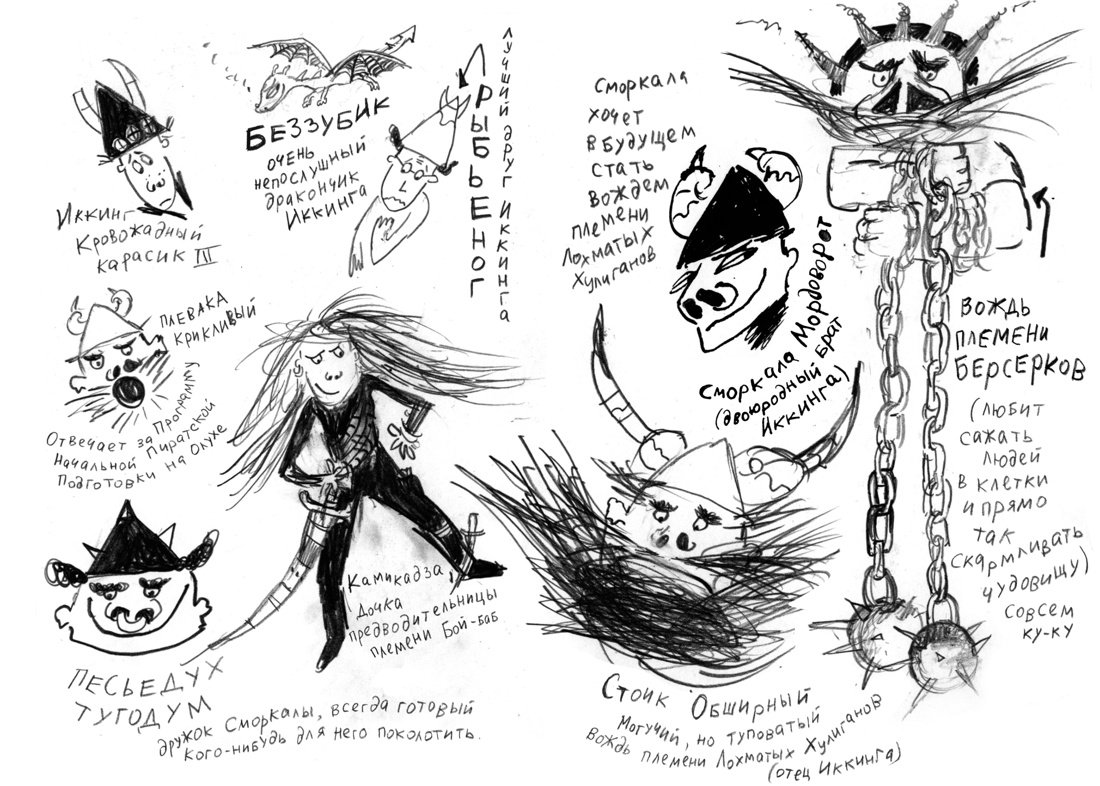 Иккинг
Кровожадный
карасик III
БЕЗЗУБИК
очень
непослушный
дракончик
Иккинга
РЫБЬЕНОГ
ЛУЧШИЙ ДРУГ ИККИНГА
ПЛЕВАКА
КРИКЛИВЫЙ
Отвечает за Программу
Начальной Пиратской
Подготовки на Олухе
ПЕСЬЕДУХ
ТУГОДУМ
дружок Сморкалы, всегда готовый
кого-нибудь для него поколотить.
Камикадза
Дочка
предводительницы
племени Бой-баб
Сморкала
хочет
в будущем
стать
вождем
племени
Лохматых
Хулиганов
Сморкала Мордоворот
(двоюродный брат
Иккинга)
Стоик Обширный
Могучий, но туповатый
вождь племени Лохматых Хулиганов
(отец Иккинга)
ВОЖДЬ
ПЛЕМЕНИ
БЕРСЕРКОВ
(любит
сажать
людей
в клетки
и прямо
так
скармливать
чудовищу)
совсем
ку-ку